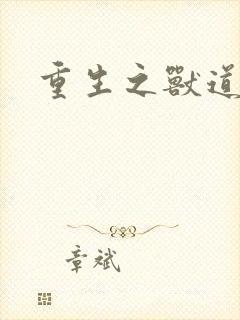 重生之獸道
章斌